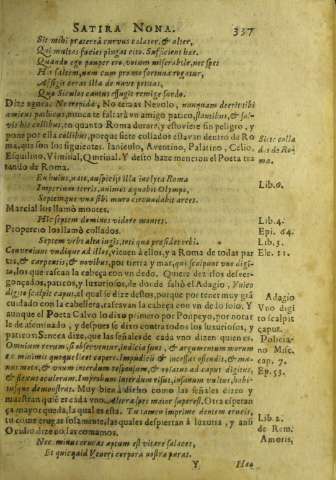 SATIRA NONA.
337
Sit mihi præterea curvus cælator, & alter,
Qui multas facies pingat citò. Sufficiunt hæc.
Quando ego pauper ero, votum miserabile, nec spes
His saltem, nam cum pro me fortuna rogatur,
Affigit ceras illa de nave petitas,
Quæ Siculos cantus effugit remige surdo.
Dize agora. Ne trepida, No temas Nevolo, nunquam deerit tibi
amicus pathicus, nunca te faltarà un amigo patico, stantibus, & sal-
vis his collibus, en quanto Roma durare, y estuviere sin peligro, y
pone por ella collibus, porque siete collados estavan dentro de Ro-
ma, que son los siguientes. Ianiculo, Aventino, Palatino, Celio,
Esquilino, Viminal, Quirinal. Y desto haze mencion el Poeta tra-
tando de Roma.
Siete colla
dos de Ro-
ma.
En huius, nate, auspicijs illa inclyta Roma
Imperium terris, animos æquabit Olympo,
Septemque una sibi muro circundabit arces.
Lib. 6.
Marcial los llamò montes.
Hic septem dominos videre montes.
Lib. 4.
Epi. 64.
Propercio los llamò collados.
Septem urbs alta iugis, toti quæ præsidet orbi.
Lib. 3.
Ele. 11.
Convenient undique ad illos, vienen à ellos, y a Roma de todas par
tes, & carpentis, & navibus, por tierra y mar, qui scalpunt uno digi-
to, los que rascan la cabeça con un dedo. Quiere dezir los desver-
gonçados, paticos, y luxuriosos, de do salio el Adagio, Unico
digito scalpit caput, el qual se dize destos, porque por tener muy grã
cuidado con la cabellera, rascavan la cabeça con un dedo solo. Y
aunque el Poeta Calvo lo dixo primero por Pompeyo, por notar
le de afeminado, y despues se dixo contra todos los luxuriosos, y
paticos: Seneca dize, que las señales de cada uno dizen quien es.
Adagio
Uno digi
to scalpit
caput.
Policia-
no Misc.
cap. 7.
Ep. 53.
Omnium rerum, si observentur, indicia sunt, & argumentum morum
ex minimis quoque licet capere. Impudicum & incessus ostendit, & ma-
nus mota, & unum interdum responsum, & relatus ad caput digitus,
& flexus oculorum. Improbum interdum risus, insanum vultus, habi-
tusque demonstrat. Muy bien à dicho como las señales dizen y
muestran qual es cada uno. Altera spes maior superest. Otra esperan
ça mayor queda, la qual es esta. Tu tamen imprime dentem erucis,
tu come orugas solamente, las quales despiertan à luxuria, y assi
Ovidio dize no las comamos.
Lib. 2.
de Rem.
Amoris,
Nec minus erucas aptum est vitare salaces,
Et quicquid Veneri corpora nostra parat.
Y